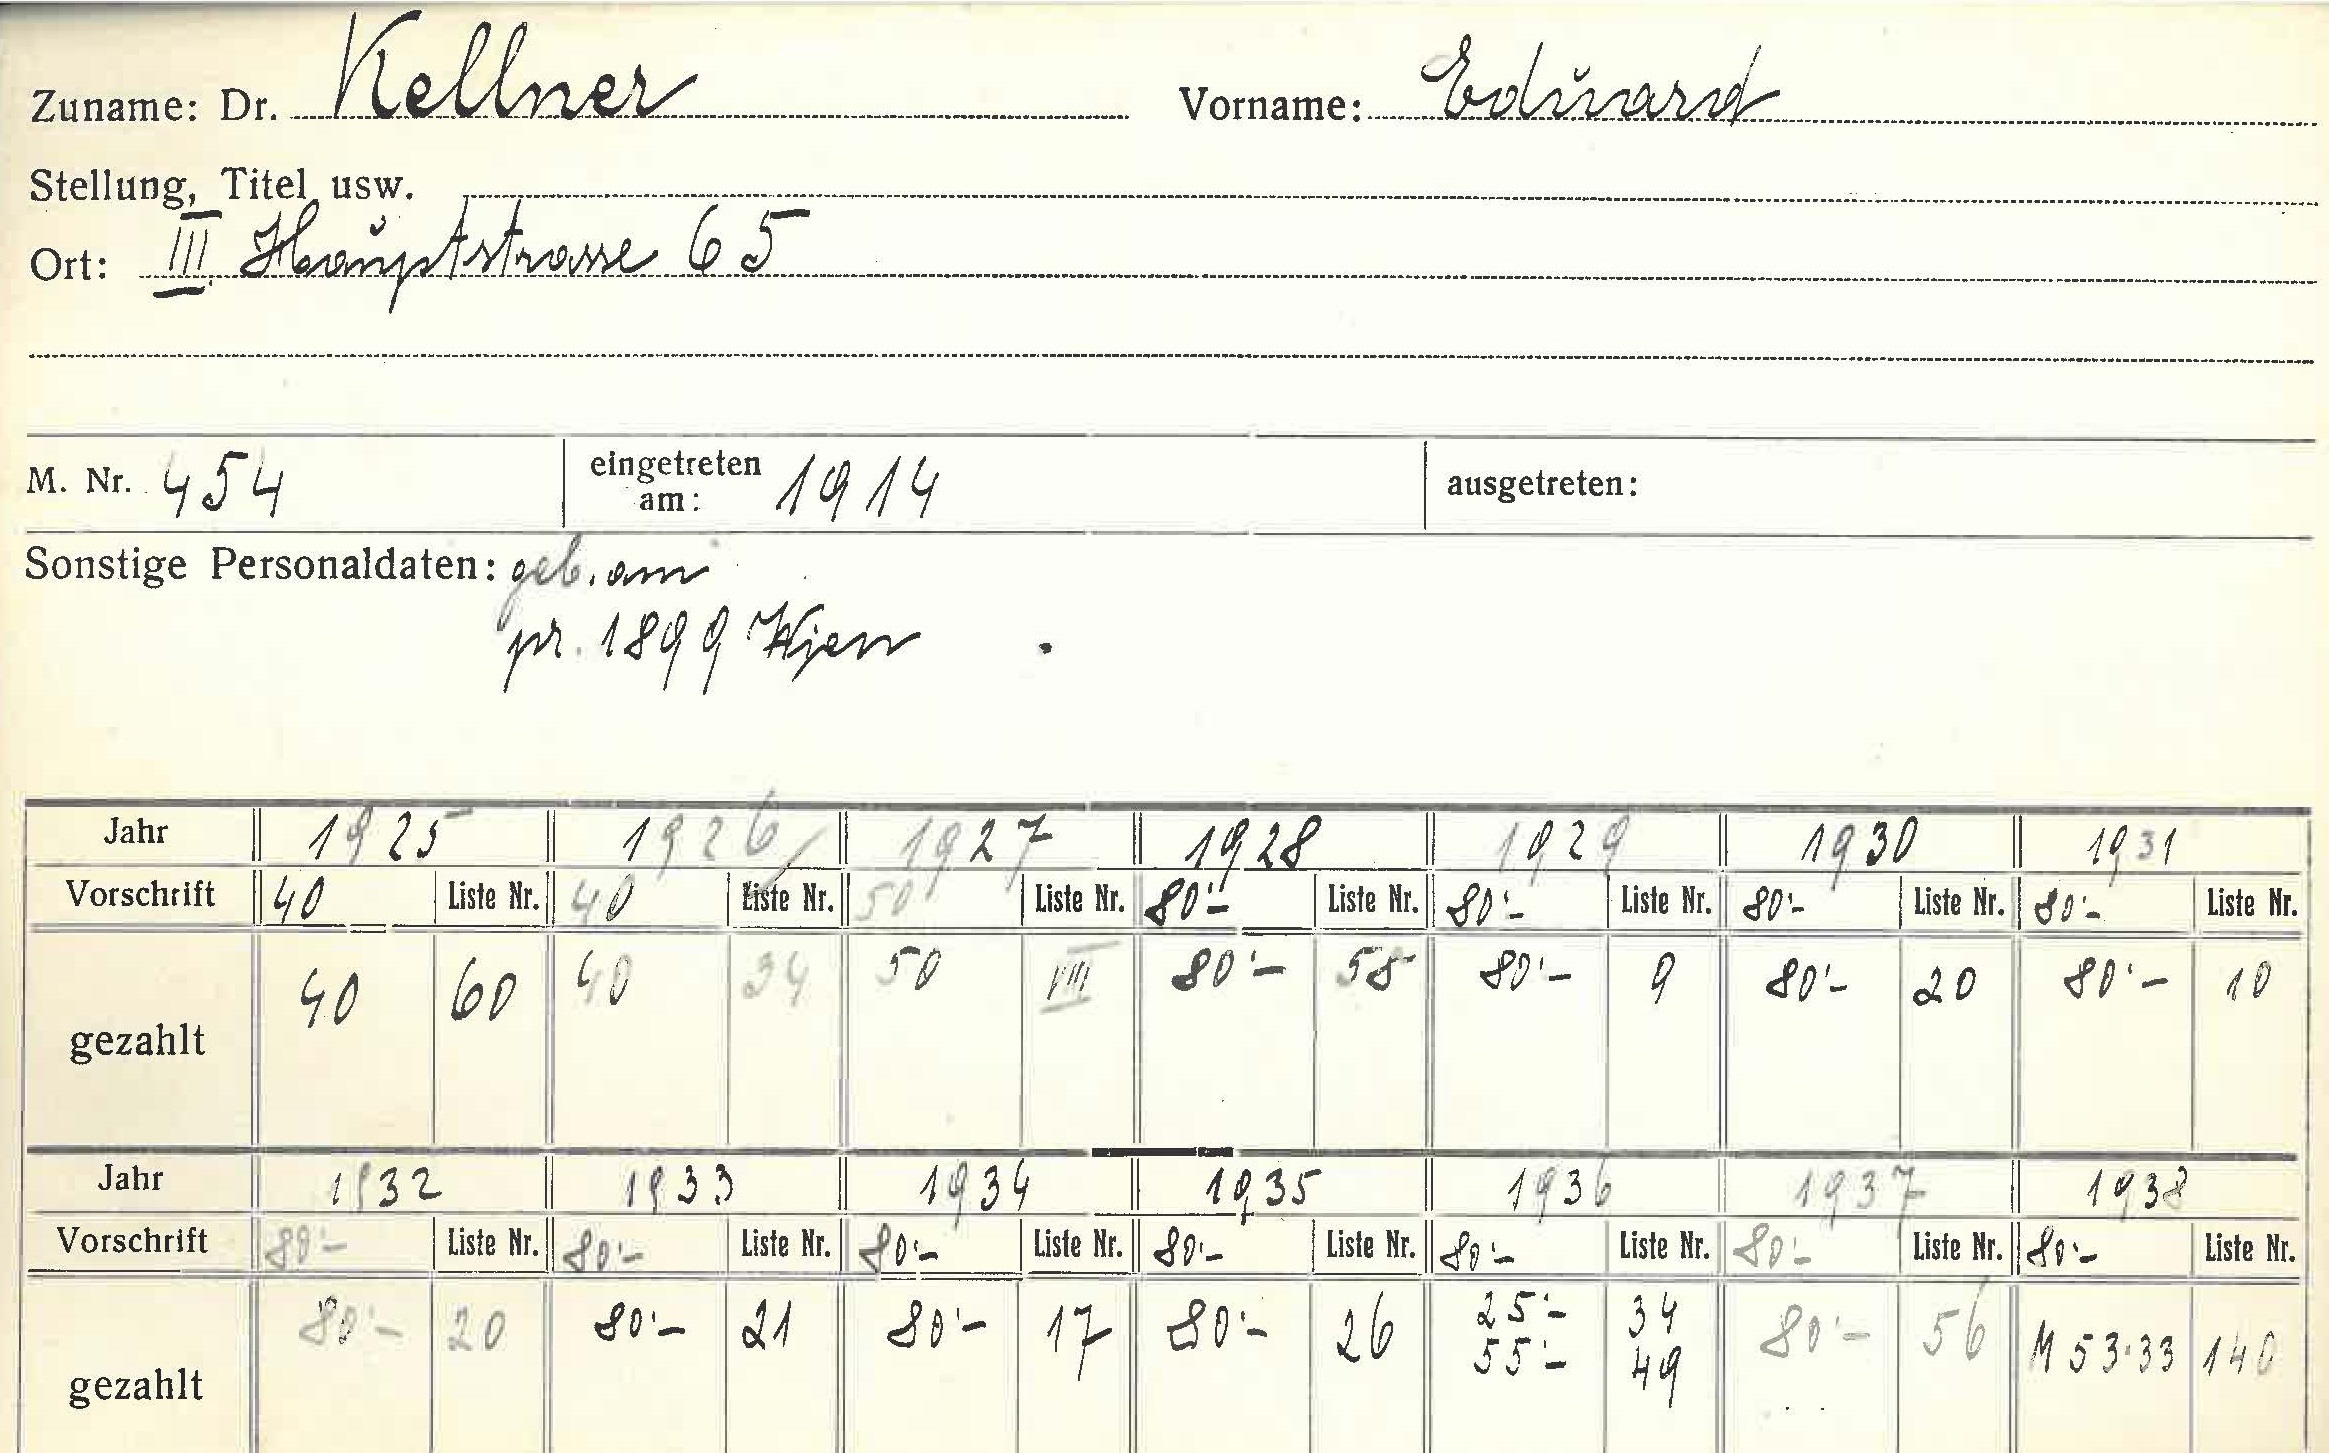 Zuname: Dr. Kellner Vorname: Eduard
Stellung, Titel usw.
Ort: III. Hauptstrasse 65
M. Nr. 454 eingetreten am: 1914 ausgetreten:
Sonstige Personaldaten: geb. am
pr. 1899 Wien
Jahr 1925 1926 1927 1928 1929 1930 1931
Vorschrift 40 Liste Nr. 40 Liste Nr. 50 Liste Nr. 80'- Liste Nr. 80'- Liste Nr. 80'- Liste Nr. 80'- Liste Nr.
gezahlt 40 60 40 34 50 VIII 80'- 58 80'- 9 80'- 20 80'- 10
Jahr 1932 1933 1934 1935 1936 1937 1938
Vorschrift 80'- Liste Nr. 80'- Liste Nr. 80'- Liste Nr. 80'- Liste Nr. 80'- Liste Nr. 80'- Liste Nr. 80'- Liste Nr.
gezahlt 80'- 20 80'- 21 80'- 17 80'- 26 25'- 34 80'- 56 M 53·33 140
55'- 49